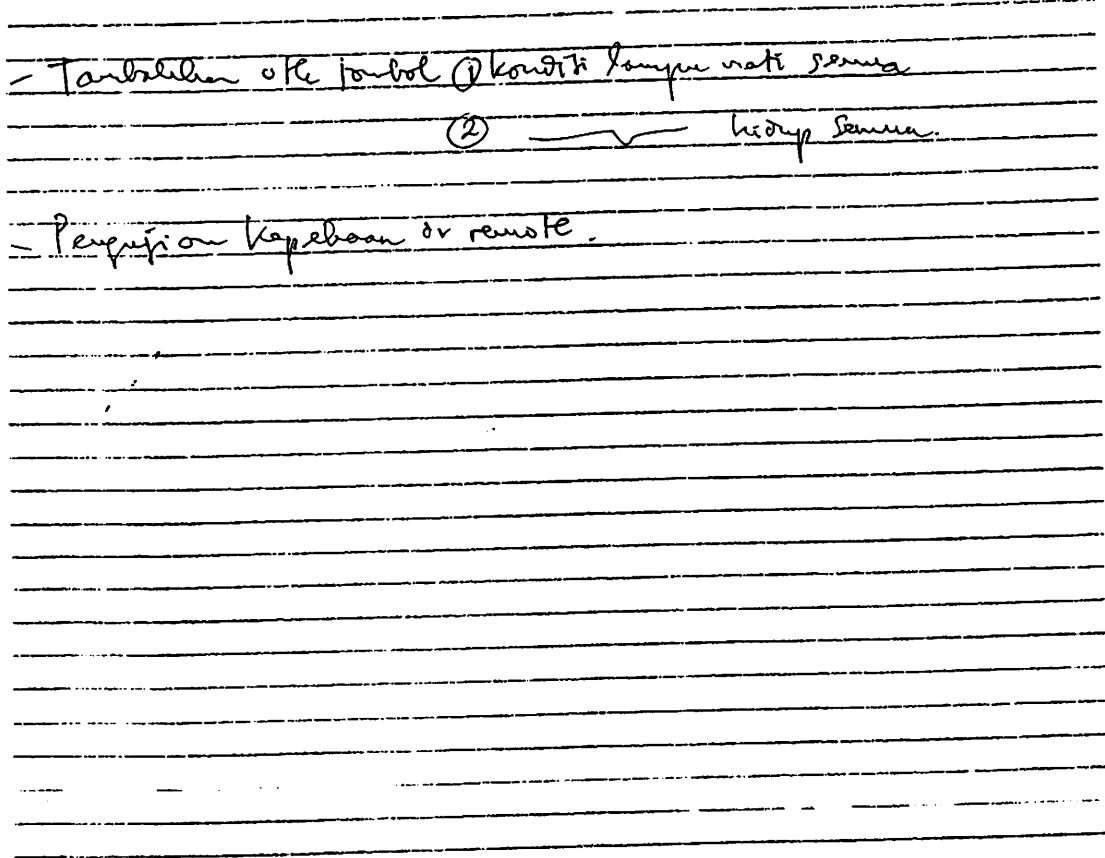 - Tambahkan utk tombol ① kondisi lampu mati semua
② hidup semua.
- Pengujian kepekaan dr remote.